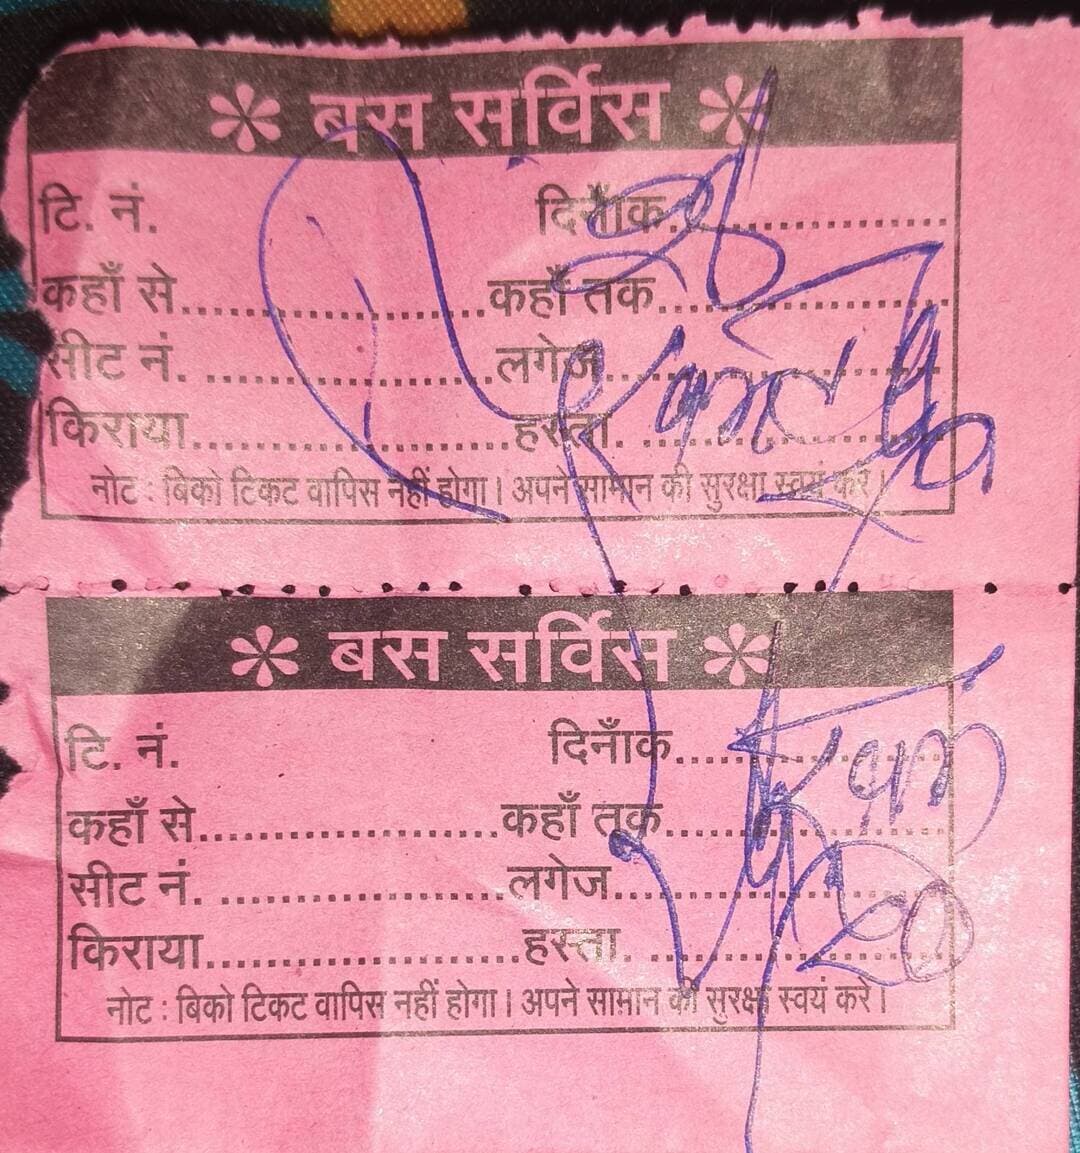 बस सर्विस
टि. नं. दिनाँक
कहाँ से कहाँ तक
सीट नं. लगेज
किराया हस्ता.
नोट : बिको टिकट वापिस नहीं होगा। अपने सामान की सुरक्षा स्वयं करें।
बस सर्विस
टि. नं. दिनाँक
कहाँ से कहाँ तक
सीट नं. लगेज
किराया हस्ता.
नोट : बिको टिकट वापिस नहीं होगा। अपने सामान की सुरक्षा स्वयं करे।